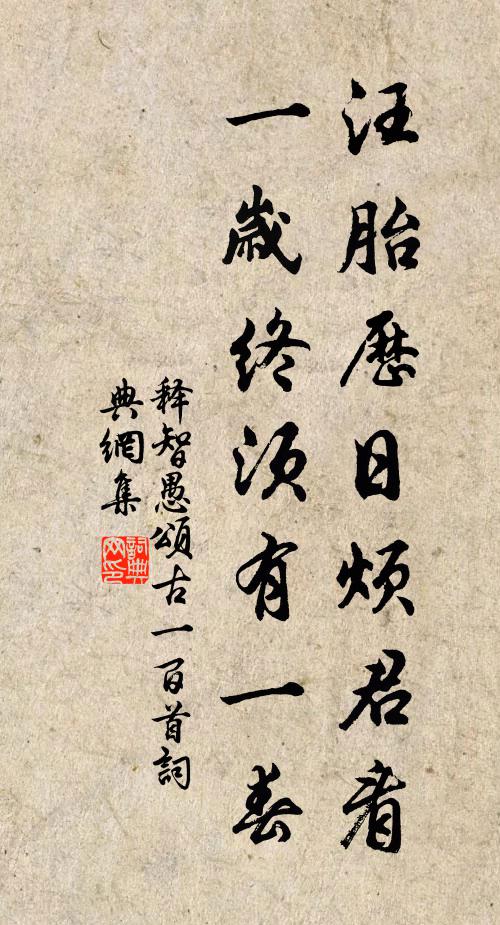 汪胎歷日煩君看
一歲終須有一春
釋智愚頌古一百首詞
典網集
詞典網印